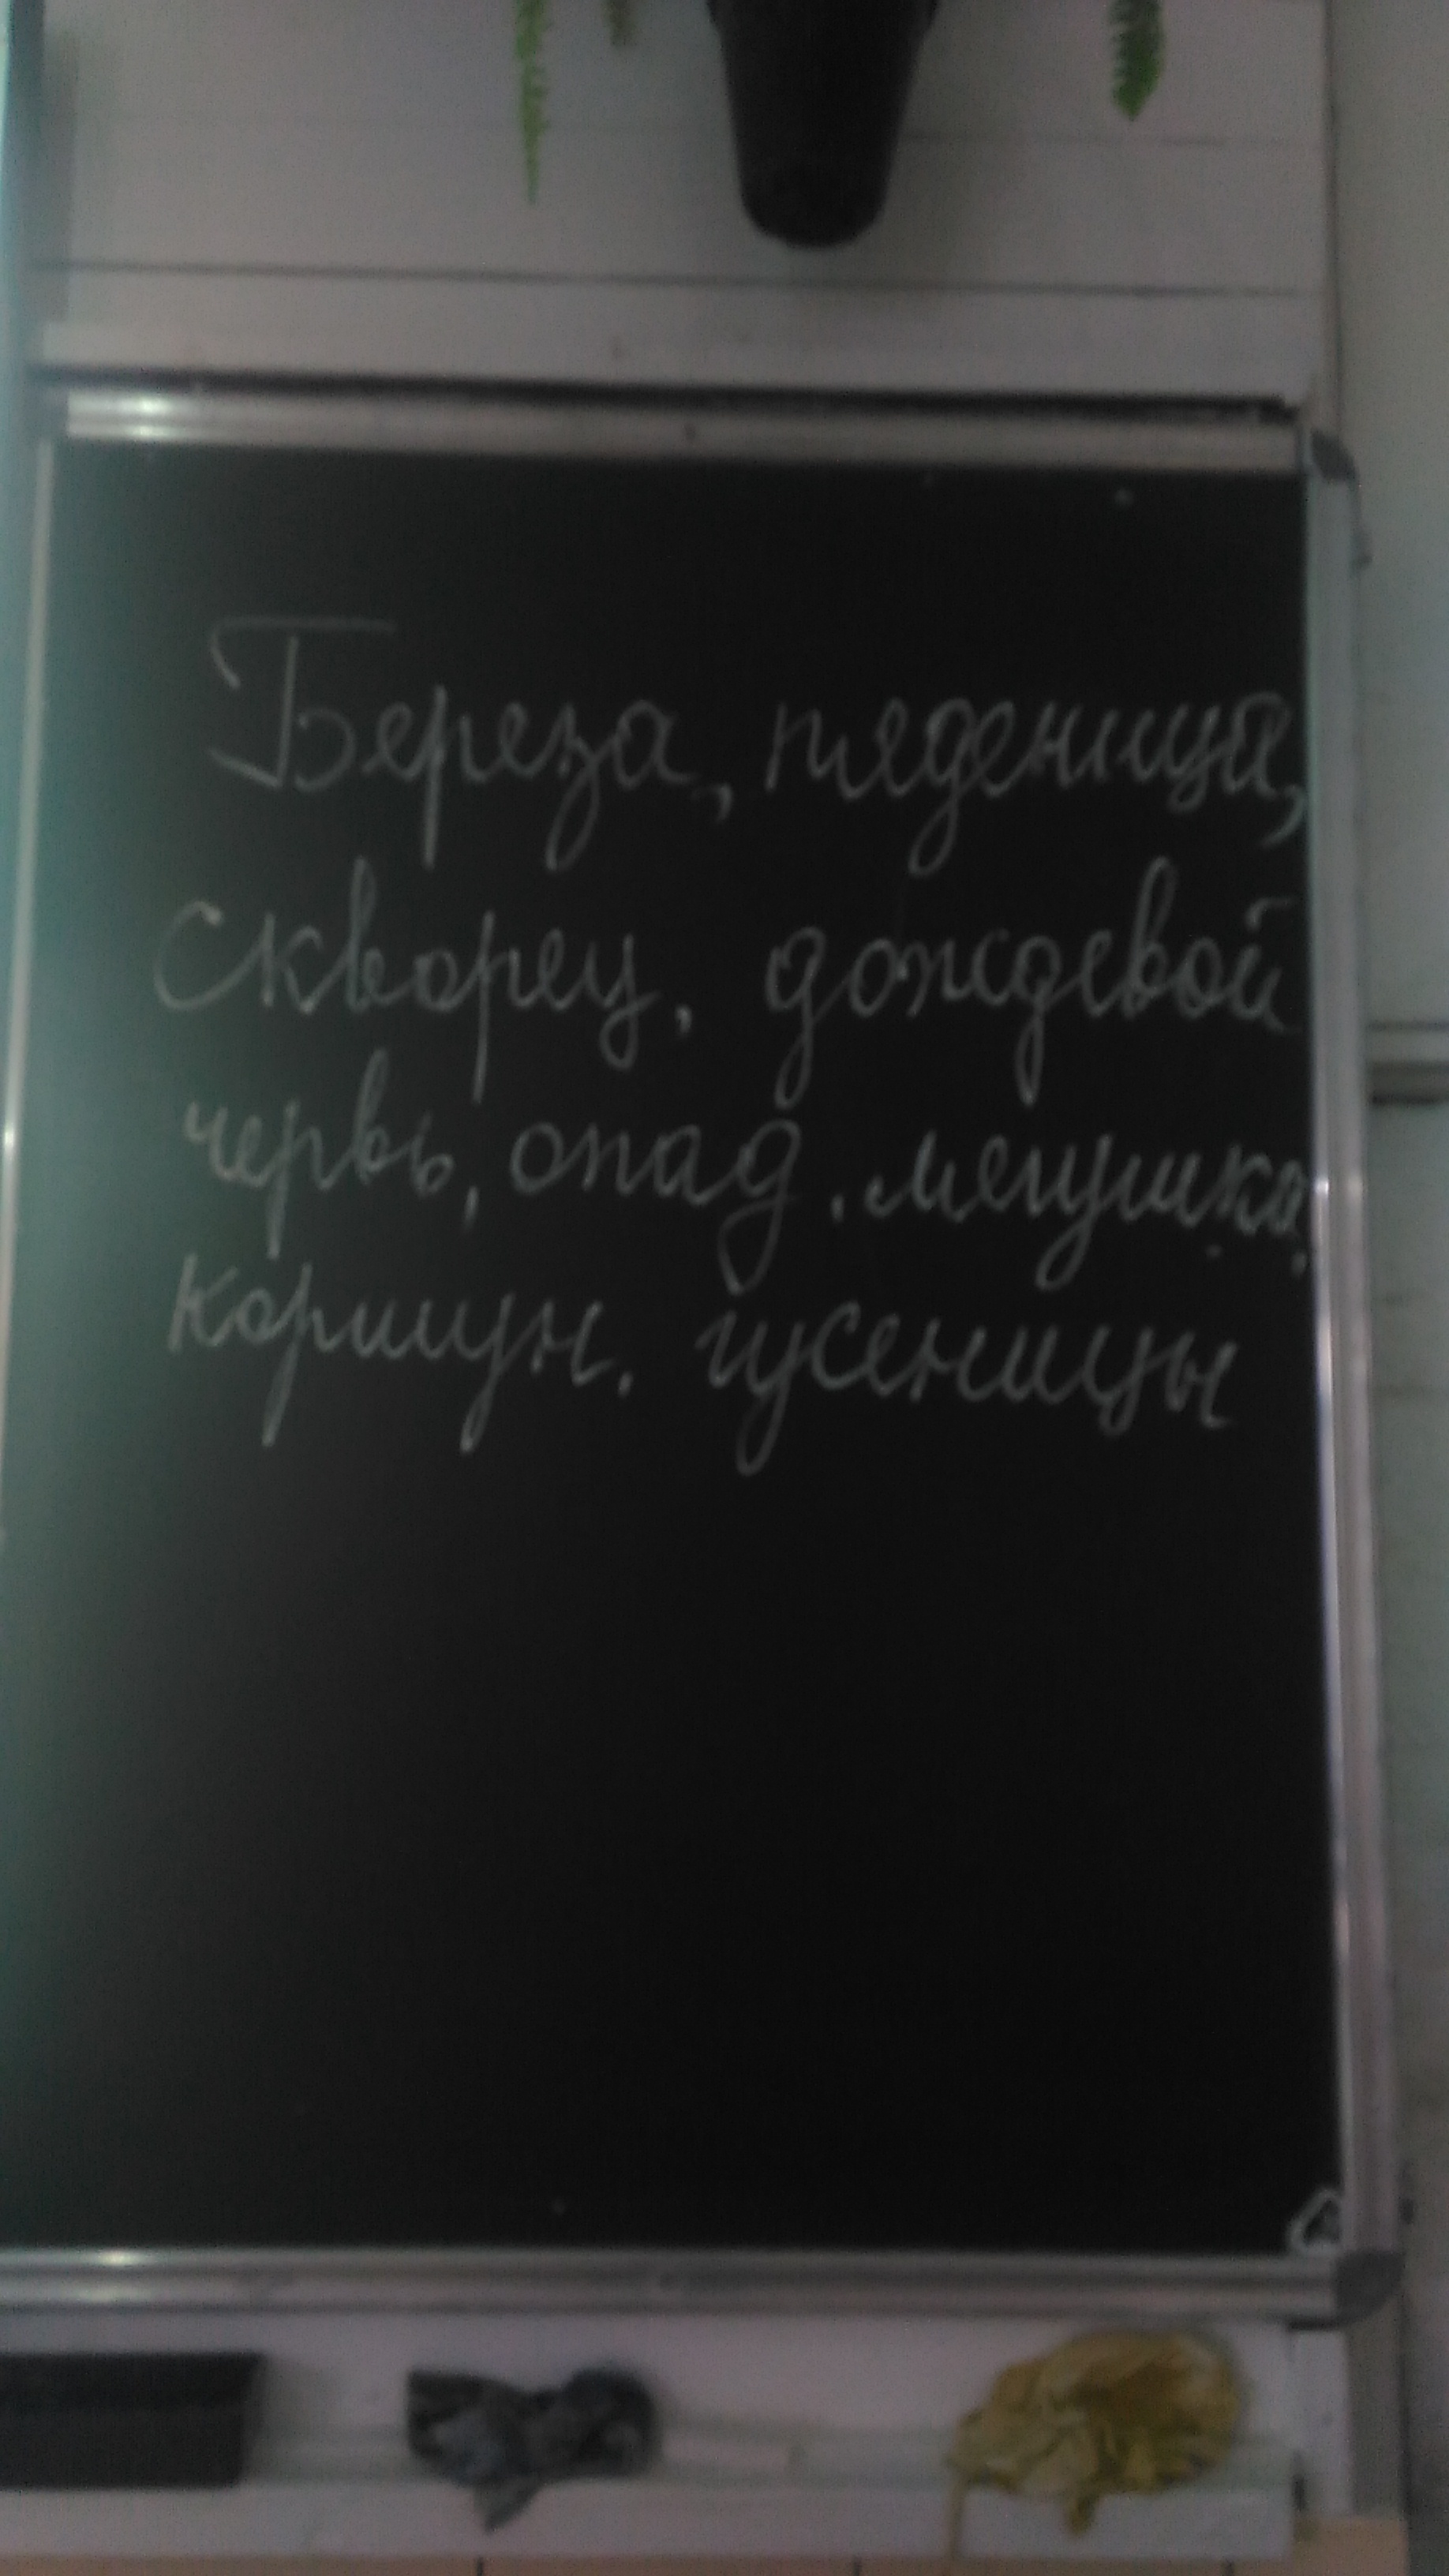 Береза, пяденица,
скворец, дождевой
червь, опад, лягушка,
коршун, гусеницы